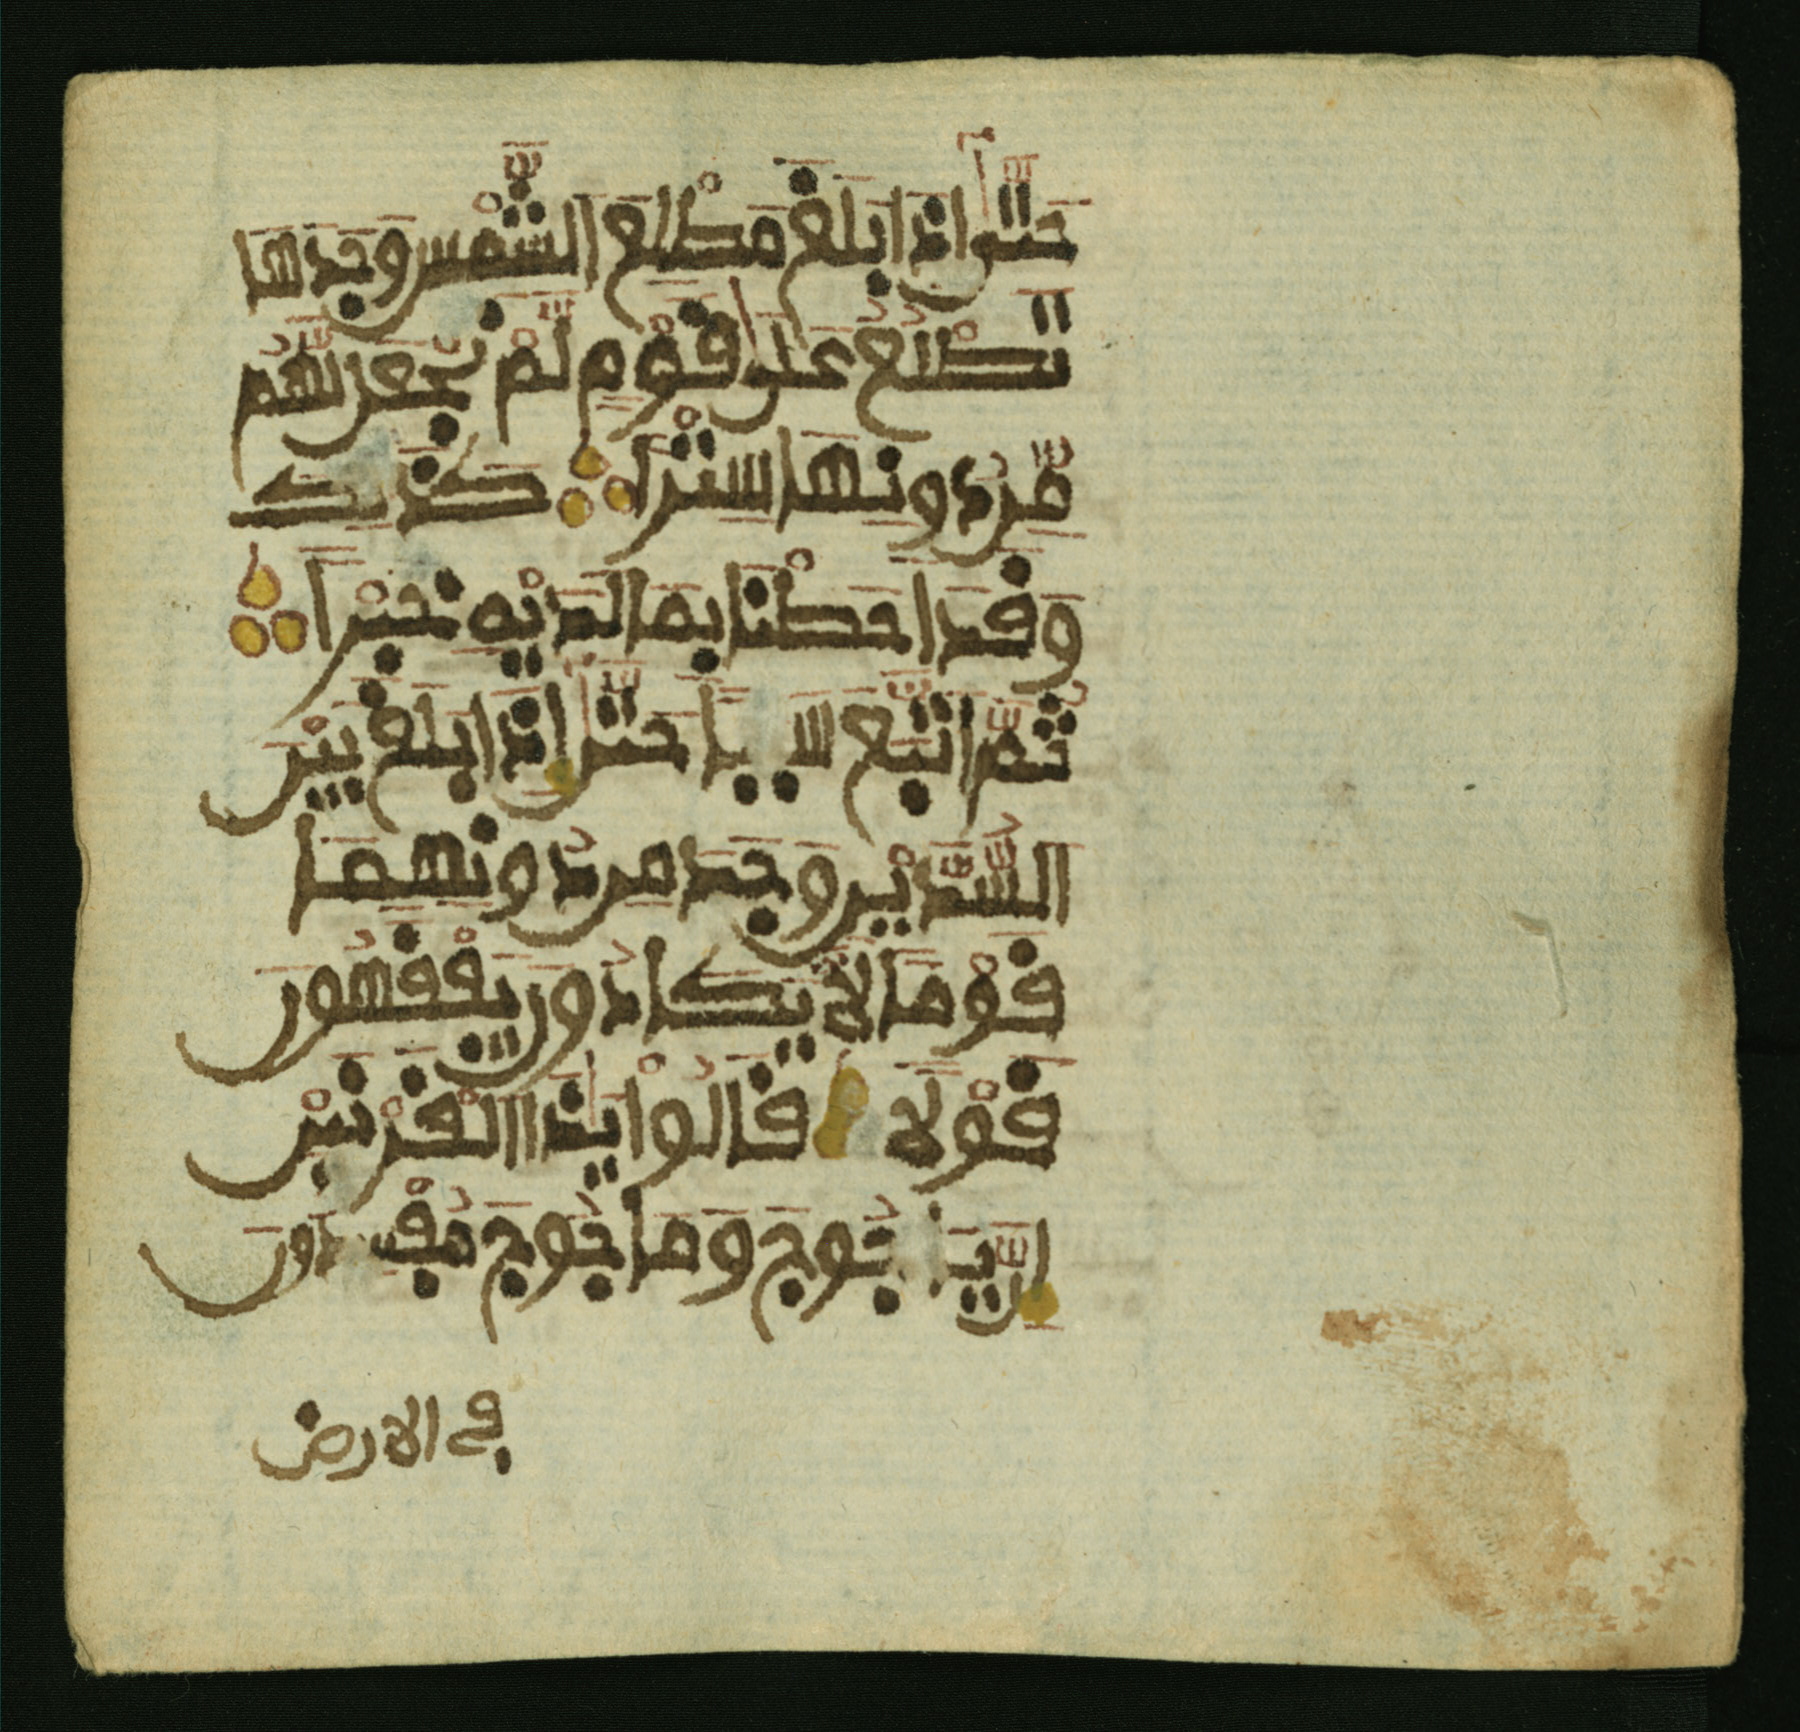 حتى اذا بلغ مطلع الشمس وجدها
تطلع على قوم لم نجعل لهم
من دونها سترا كذلك
وقد احطنا بما لديه خبرا
ثم اتبع سببا حتى اذا بلغ بين
السدين وجد من دونهما
قوما لا يكادون يفقهون
قولا قالوا يذا القرنين
ان ياجوج وماجوج مفسدون
في الارض